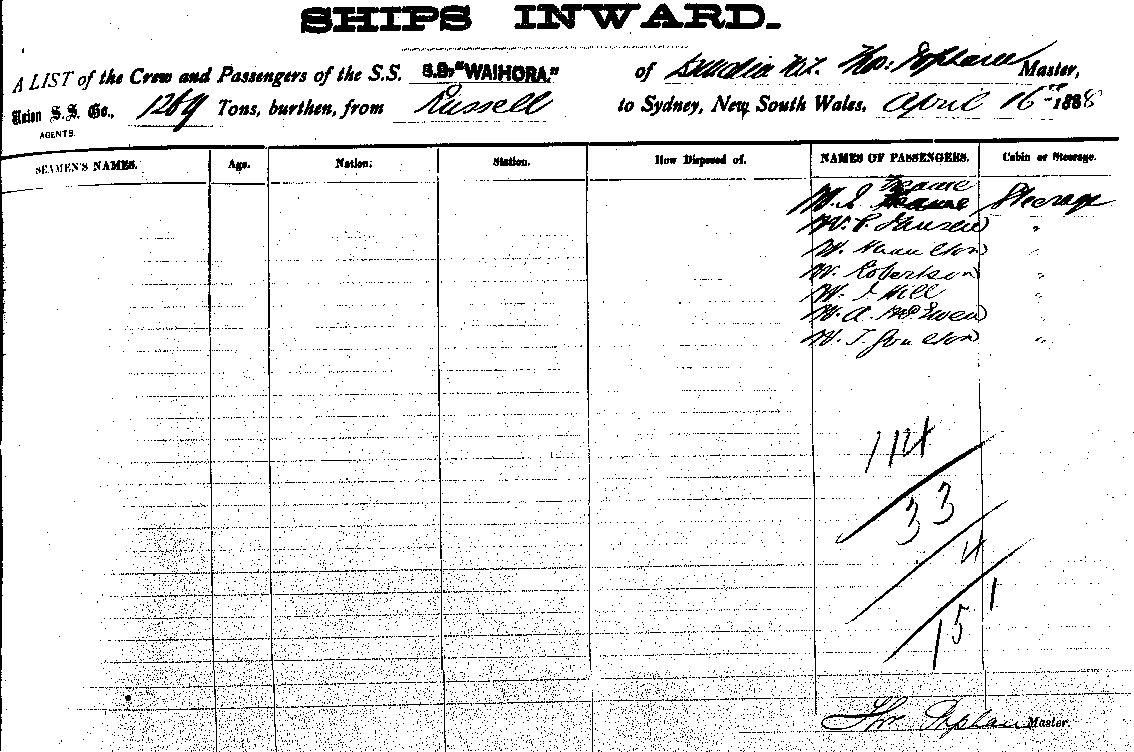 SHIPS INWARD.
A LIST of the Crew and Passengers of the S.S. S.S. "WAIHORA." of Dunedin N.Z. Master,
Union S. S. Co., 1269 Tons, burthen, from Russell to Sydney, New South Wales, April 16th 1888
AGENTS.
SEAMEN'S NAMES. Age. Nation. Station. How Disposed of. NAMES OF PASSENGERS. Cabin or Steerage.
M. Steerage
M. "
M. Hamilton "
M. Robertson "
M. J Hill "
M. A. McEwen "
M. T. "
114
33
4
151
Master.